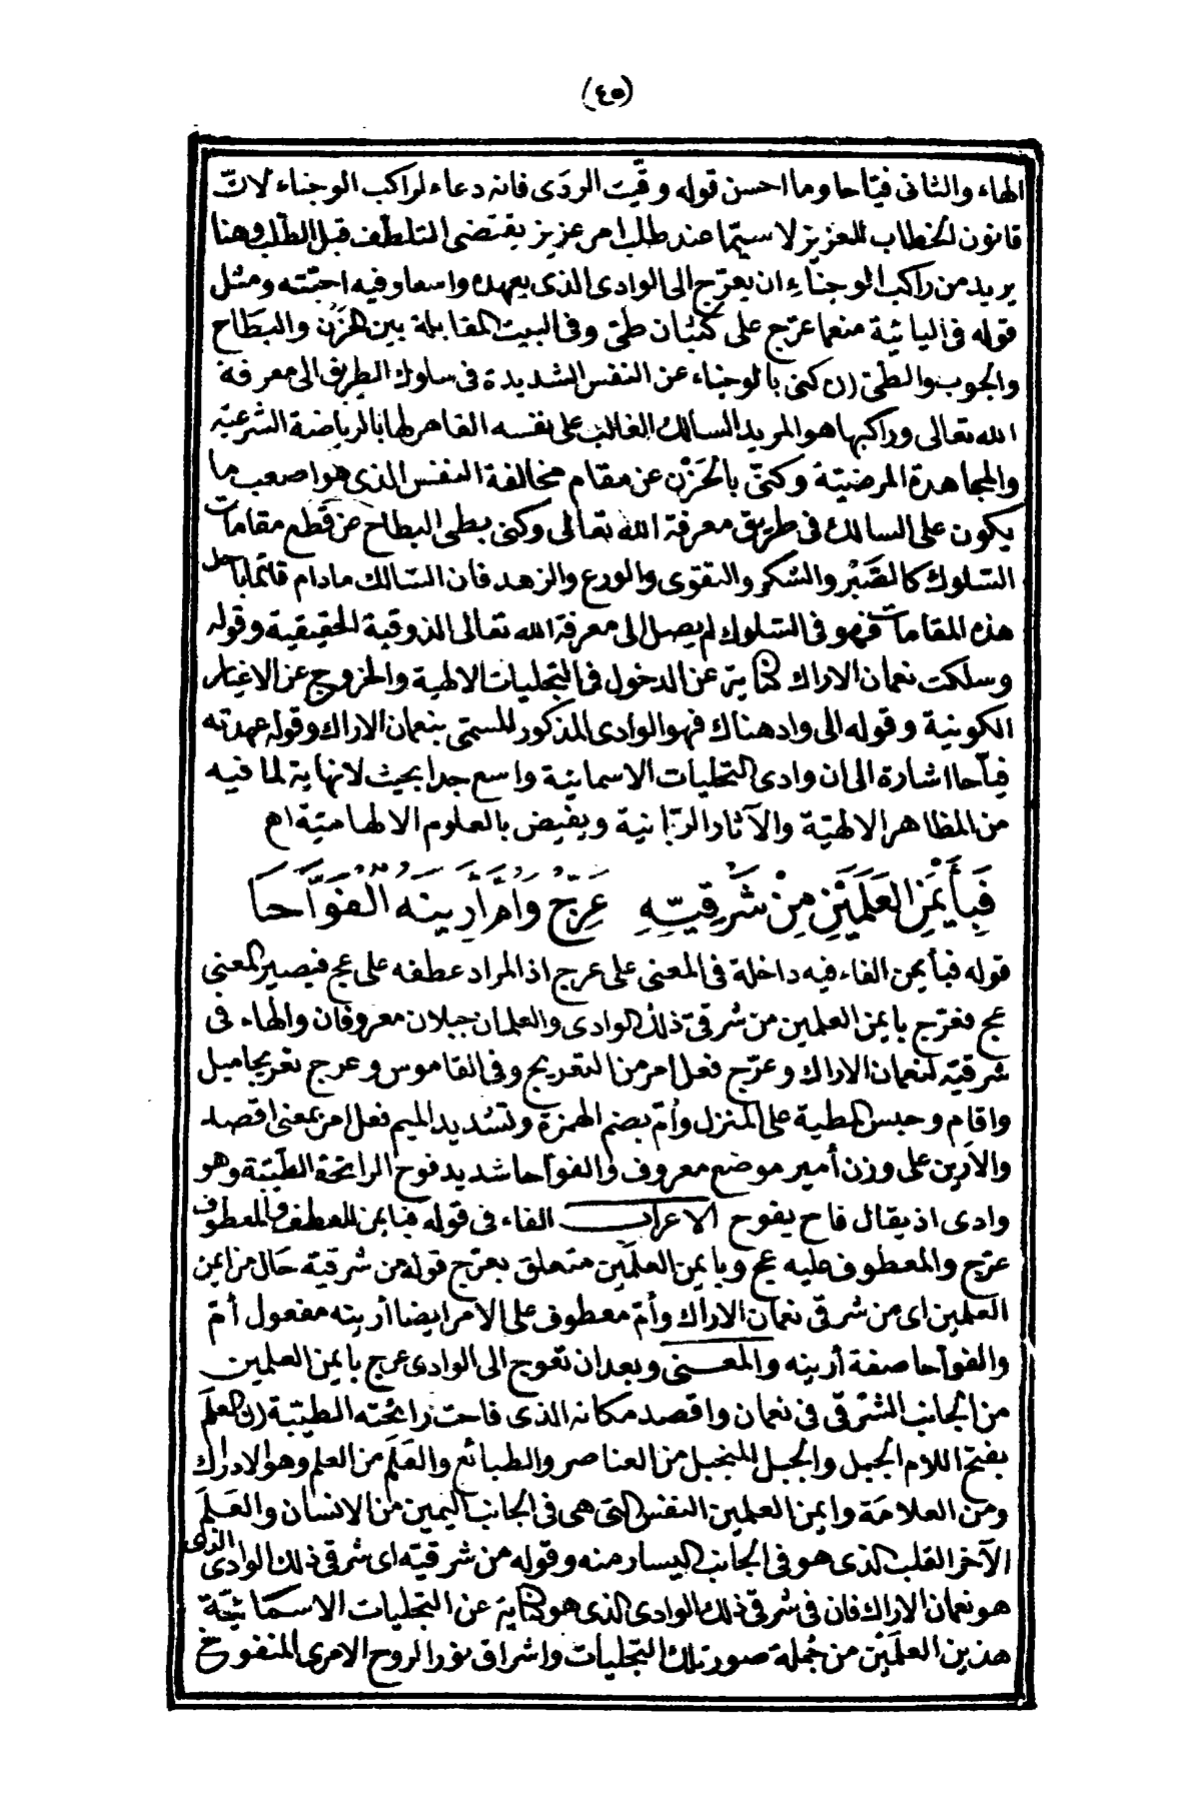 (٤٥)
الهاء والثانى فيّاحا وما احسن قوله وقّيت الردَى فانه دعاء لراكب الوجناء لانّ
قانون الخطاب للعزيز لا سيّما عند طلب امر عزيز يقتضى التلطّف قبل الطّلب وهنا
يريد من راكب الوجناءِ ان يعرّج الى الوادى الذى يعهده واسعا وفيه احبّته ومثل
قوله فى اليائيّة منعما عرّج على كثبان طىّ وفى البيت المقابلة بين الحَزْن والبطَاح
والجوب والطّىّ (ن) كنى بالوجناء عن النفس الشديدة فى سلوك الطريق الى معرفة
الله تعالى وراكبها هو المريد السالك الغالب على نفسه القاهر لها بالرياضة الشرعيّة
والمجاهدة المرضيّة وكنىّ بالحَزْن عن مقام مخالفة النفس الذى هو اصعب ما
يكون على السالك فى طريق معرفة الله تعالى وكنى بطى البطاح عن قَطع مقامات
السّلوك كالصَّبْر والشكر والتقوى والورع والزهد فان السّالك مادام قائما باحد
هذه المقامات فهو فى السّلوك لم يصل الى معرفة الله تعالى الذوقية الحقيقية وقوله
وسلكت نعمان الاراك كناية عن الدخول فى التجليات الالهية والخروج عن الاغيار
الكونية وقوله الى واد هناك فهو الوادى المذكور المسمّى بنعمان الاراك وقوله عهدته
فيّاحا اشارة الى ان وادى التجليات الاسمائية واسع جدا بحيث لا نهاية لما فيه
من المظاهر الالهيّة والآثار الربّانية ويفيض بالعلوم الالهاميّة اه
فَبِأَيْمَنِ العَلَمَيْنِ مِنْ شَرْقِيّهِ عَرِّجْ وَأُمَّ أَرِينَهُ الْفَوَّاحَا
قوله فبأيمن الفاء فيه داخلة فى المعنى على عرج اذ المراد عطفه على عج فيصير المعنى
عج فعرّج بايمن العلمين من شرقىّ ذلك الوادى والعلمان جبلان معروفان والهاء فى
شرقيّه لنعمان الاراك وعرّج فعل امر من التعريج وفى القاموس وعرج تعريجا ميل
واقام وحبس المطية على المنزل وأُمّ بضم الهمزة وتشديد الميم فعل امر بمعنى اقصد
والأرين على وزن أمير موضع معروف والفوّاحا شديد فوح الرائحة الطّيّبة وهو
وادى اذ يقال فاح يفوح الاعراب الفاء فى قوله فبايمن للعطف والمعطوف
عرّج والمعطوف عليه عج وبايمن العلمَين متعلق بعرّج قوله من شرقيّه حَال من ايمن
العلمين اى من شرقى نعمان الاراك وأُمّ معطوف على الامر ايضا أرينه مفعول أمّ
والفوّاحا صفة أرينه والمعنى وبعد ان تعوج الى الوادى عرج بايمن العلمين
من الجانب الشرقى فى نعمان واقصد مكانه الذى فاحت رائحته الطيبة (ن) العلَم
بفتح اللام الجبل والجبل المنجبل من العناصر والطبائع والعَلَم من العلم وهو الادراك
ومن العلامَة وايمن العلمين النفس التى هى فى الجانب اليمين من الانسان والعَلَم
الآخر القلب الذى هو فى الجانب اليسار منه وقوله من شرقيّه اى شرقى ذلك الوادى الذى
هو نعمان الاراك فان فى شرقى ذلك الوادى الذى هو كناية عن التجليات الاسمَائيّة
هذين العلَمَين من جُملة صور تلك التجليات واشراق نور الروح الامرى المنفوخ